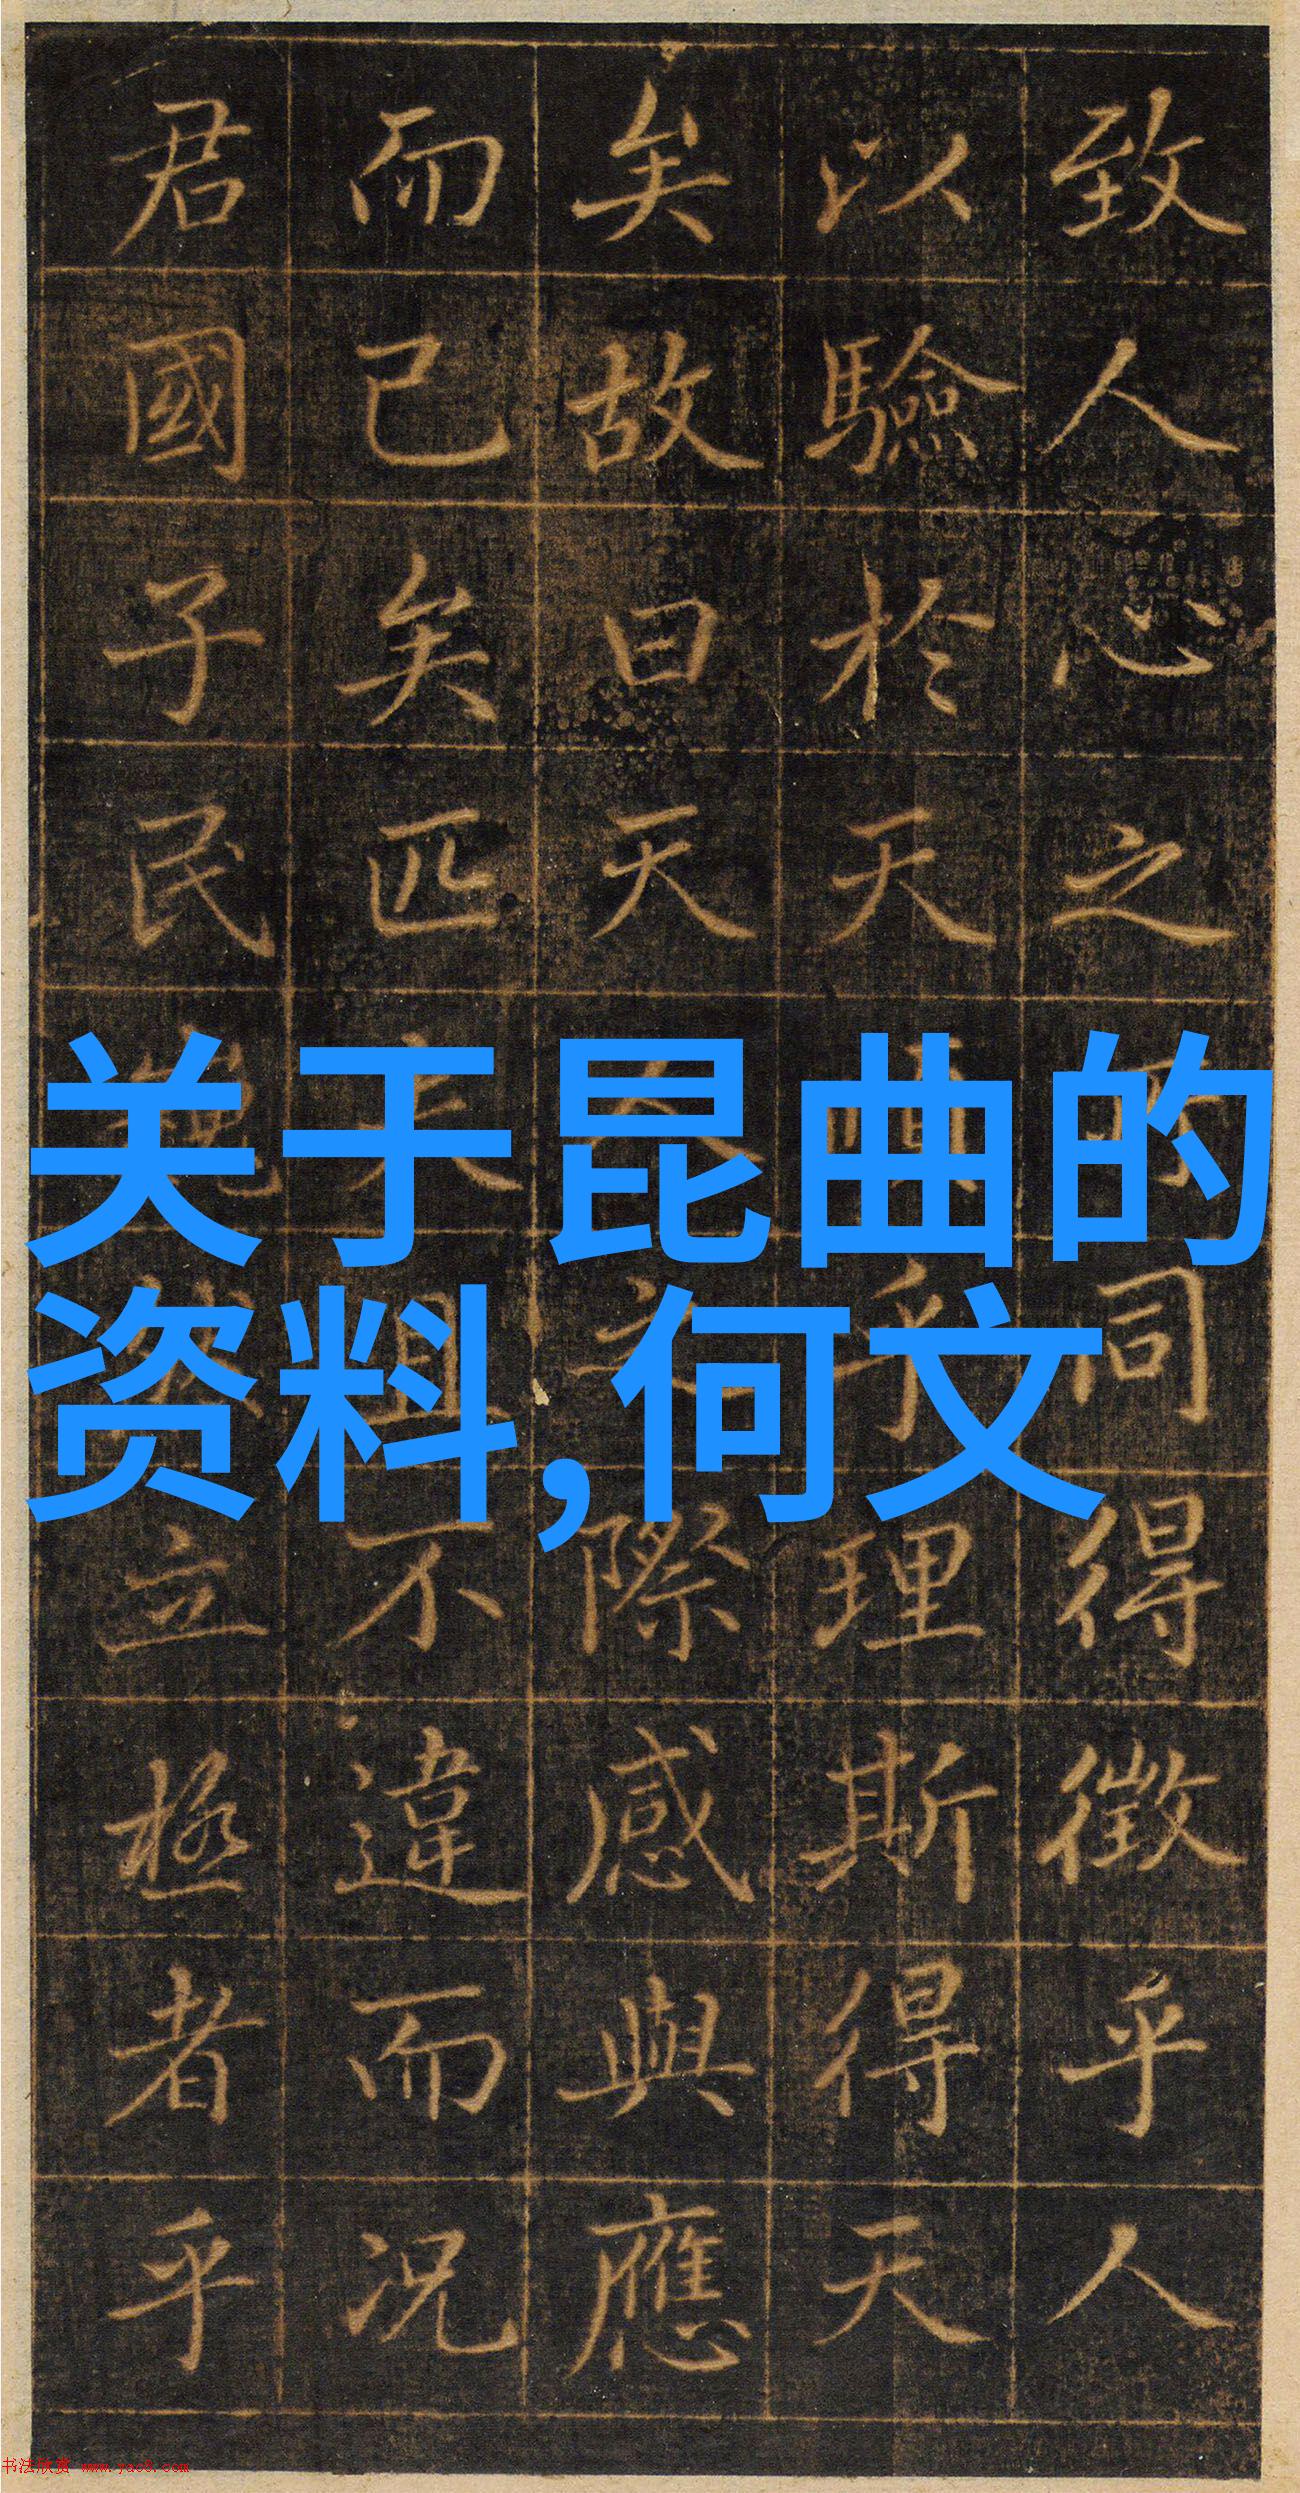 致人心之所同得徵乎人
以驗於天順乎理斯得天
矣故曰天人之際感與應
而已矣匹夫且不違而況
君國子民立極者乎
关于昆曲的
资料,何文
书法欣赏 www.yac8.com